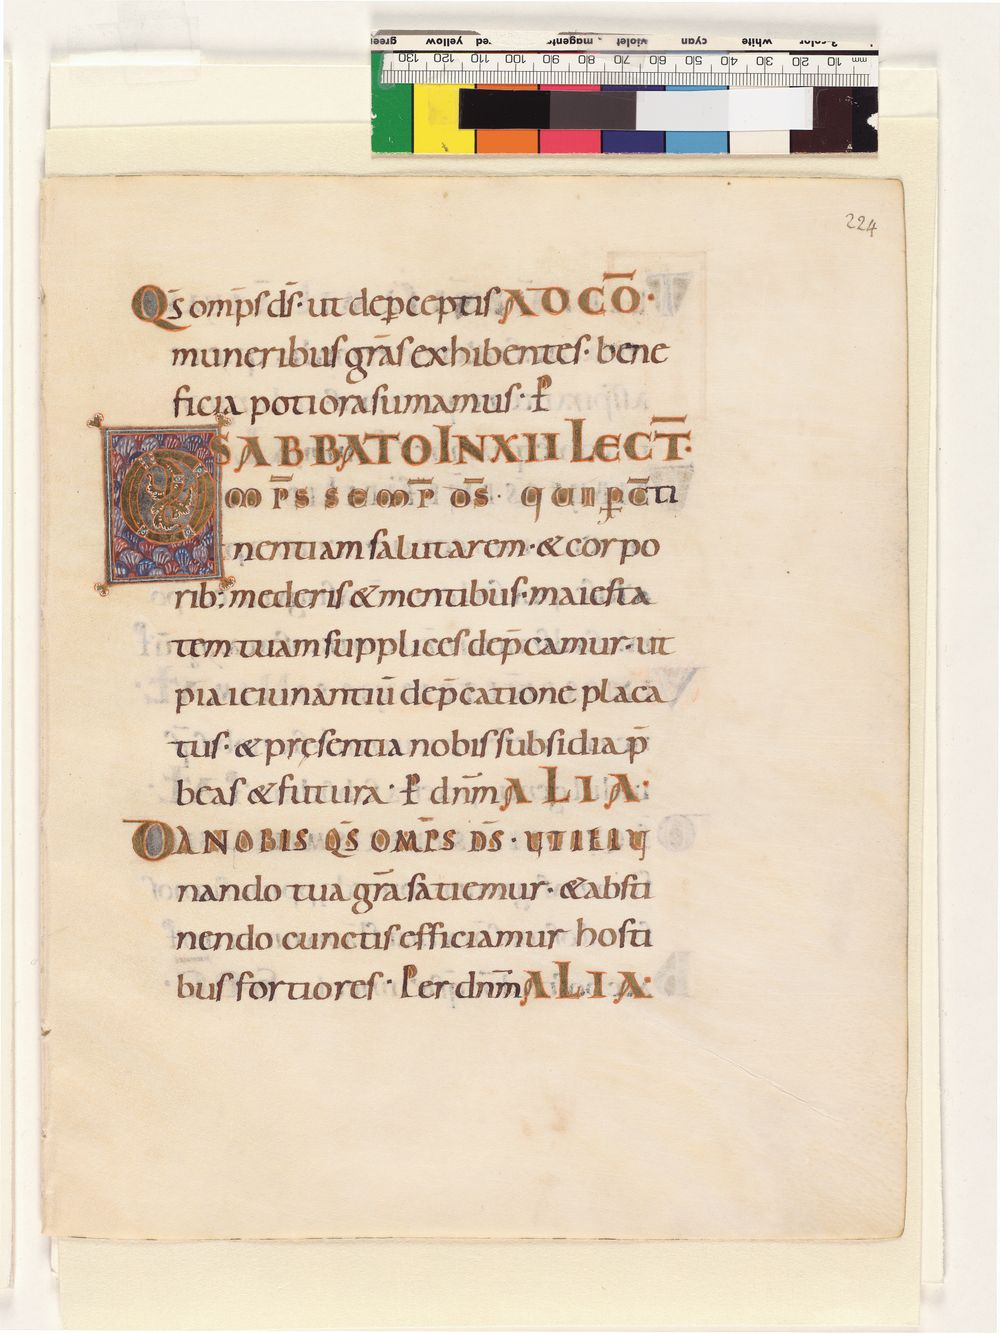 224
Q̄s omp̄s d̄s· ut dep̱ceptis AD CŌ·
muneribus gr̄as exhibentes· bene
ficia potiora sumamus· P̱
SABBATO IN XII LECT̄·
OMP̄S SEMP̄ D̄S· QUI P̱ C̄TI
nentiam salutarem· & corpo
rib; mederis & mentibus· maiesta
tem tuam supplices dep̄camur· ut
pia ieiunantiū dep̄catione placa
tus· & presentia nobis subsidia p̄
beas & futura· P̱ dn̄m ALIA:
DA NOBIS Q̄S OMP̄S D̄S· UT IEIU
nando tua gr̄a satiemur· & absti
nendo cunctis efficiamur hosti
bus fortiores· Per dn̄m ALIA: